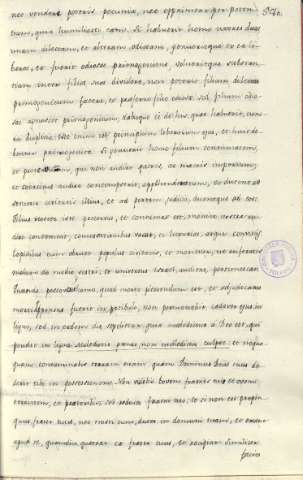 nec vendere poteris pecunia, nec opprimere per poten
tiam, quia humiliasti eam. Si habuerit homo uxores duas
unam dilectam, et alteram odiosam, genuerintque ex eo li
beros, et fuerit odiosae primogenitus, volueritque substan
tiam inter filios suos dividere, non poterit filium dilectae
primogenitum facere, et praeferre filio odiosae sed filium odio
sae agnoscet primogenitum dabitque ei de his, quae habuerit, cunc
ta duplicia: iste enim est principium liberorum ejus, et huic de
bentur primogenita. Si genuerit homo filium contumacem,
et qui non audiat patris, ac matris imperium,
et coercitus obedire contempserit, apprehendent eum, et ducent ad
seniores civitatis illius, et ad portam judicii, dicentque ad eos:
Filius noster iste protervus, et contumax est, monita nostra au
dire contemnit, comessationibus vacat, et luxuriae, atque conviviis
lapidibus eum obruet populus civitatis, et morietur, ut auferatis
malum de medio vestri, et universus Israel, audiens, pertimescat
Quando peccaverit homo, quod morte plectendum est, et adjudicatus
morti appensus fuerit in patibulo, non permanebit cadaver ejus in
ligno, sed in eadem die sepelietur, quia maledictus a Deo est, qui
pendet in ligno et nequa
quam contaminabis terram tuam quam Dominus Deus tuus de
derit tibi in possessionem. Non videbis bovem fratris tui, aut ovem
errantem, et praeteribis sed reduces fratri tuo, et si non est propin
quus frater tuus, nec nosti eum, duces in domum tuam, et erunt
apud te, quamdiu quaerat ea frater tuus, et recipiat. Similiter
facies